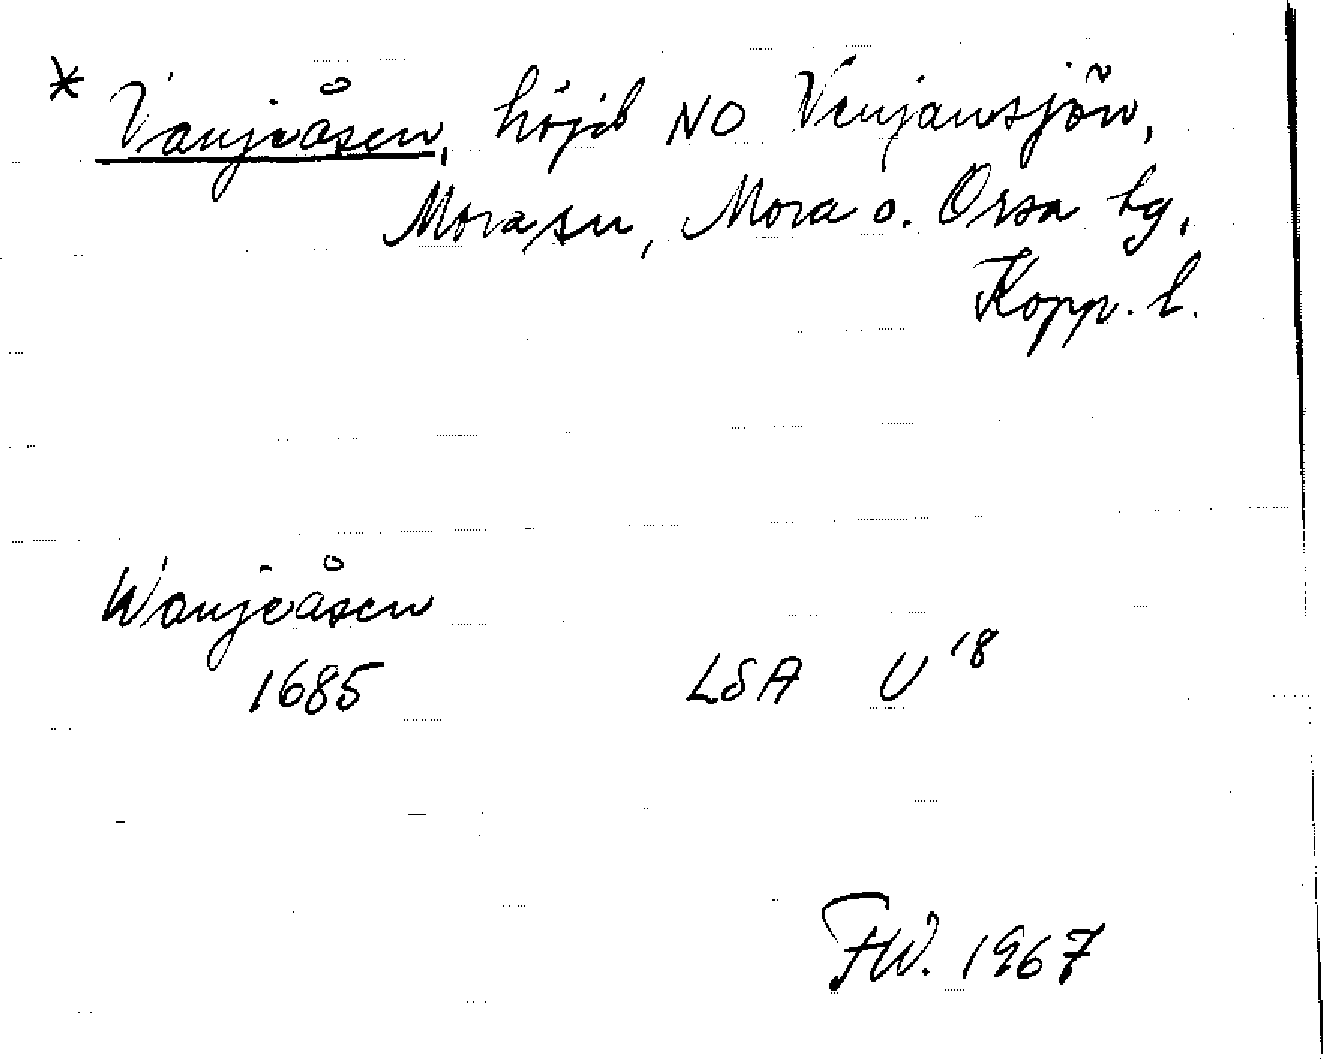 * Vanjeåsen, höjd NO Venjansjön,
Mora sn, Mora o. Orsa tg,
Kopp. l.
Wanjeåsen
1685 LSA U 18
FW. 1967